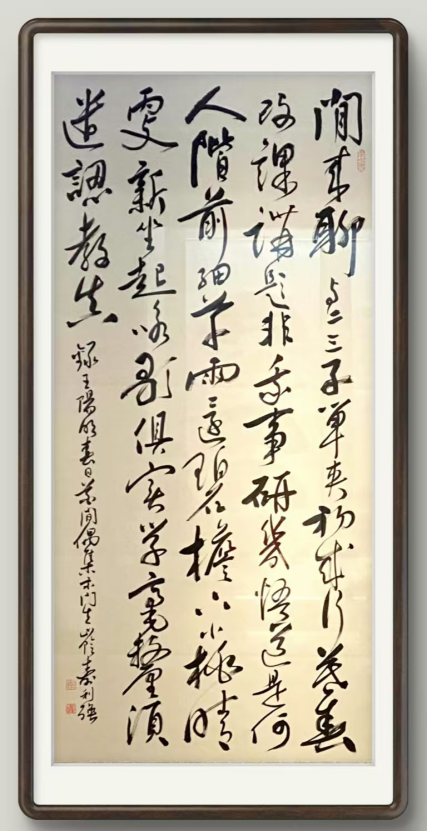 閒来聊与二三子單夹初成行暮春
改課講題非我事研幾悟道是何
人階前細草雨還碧檐下小桃晴
更新坐起咏歌俱実学毫釐須
遣認教真
錄王陽明春日花間偶集示門生